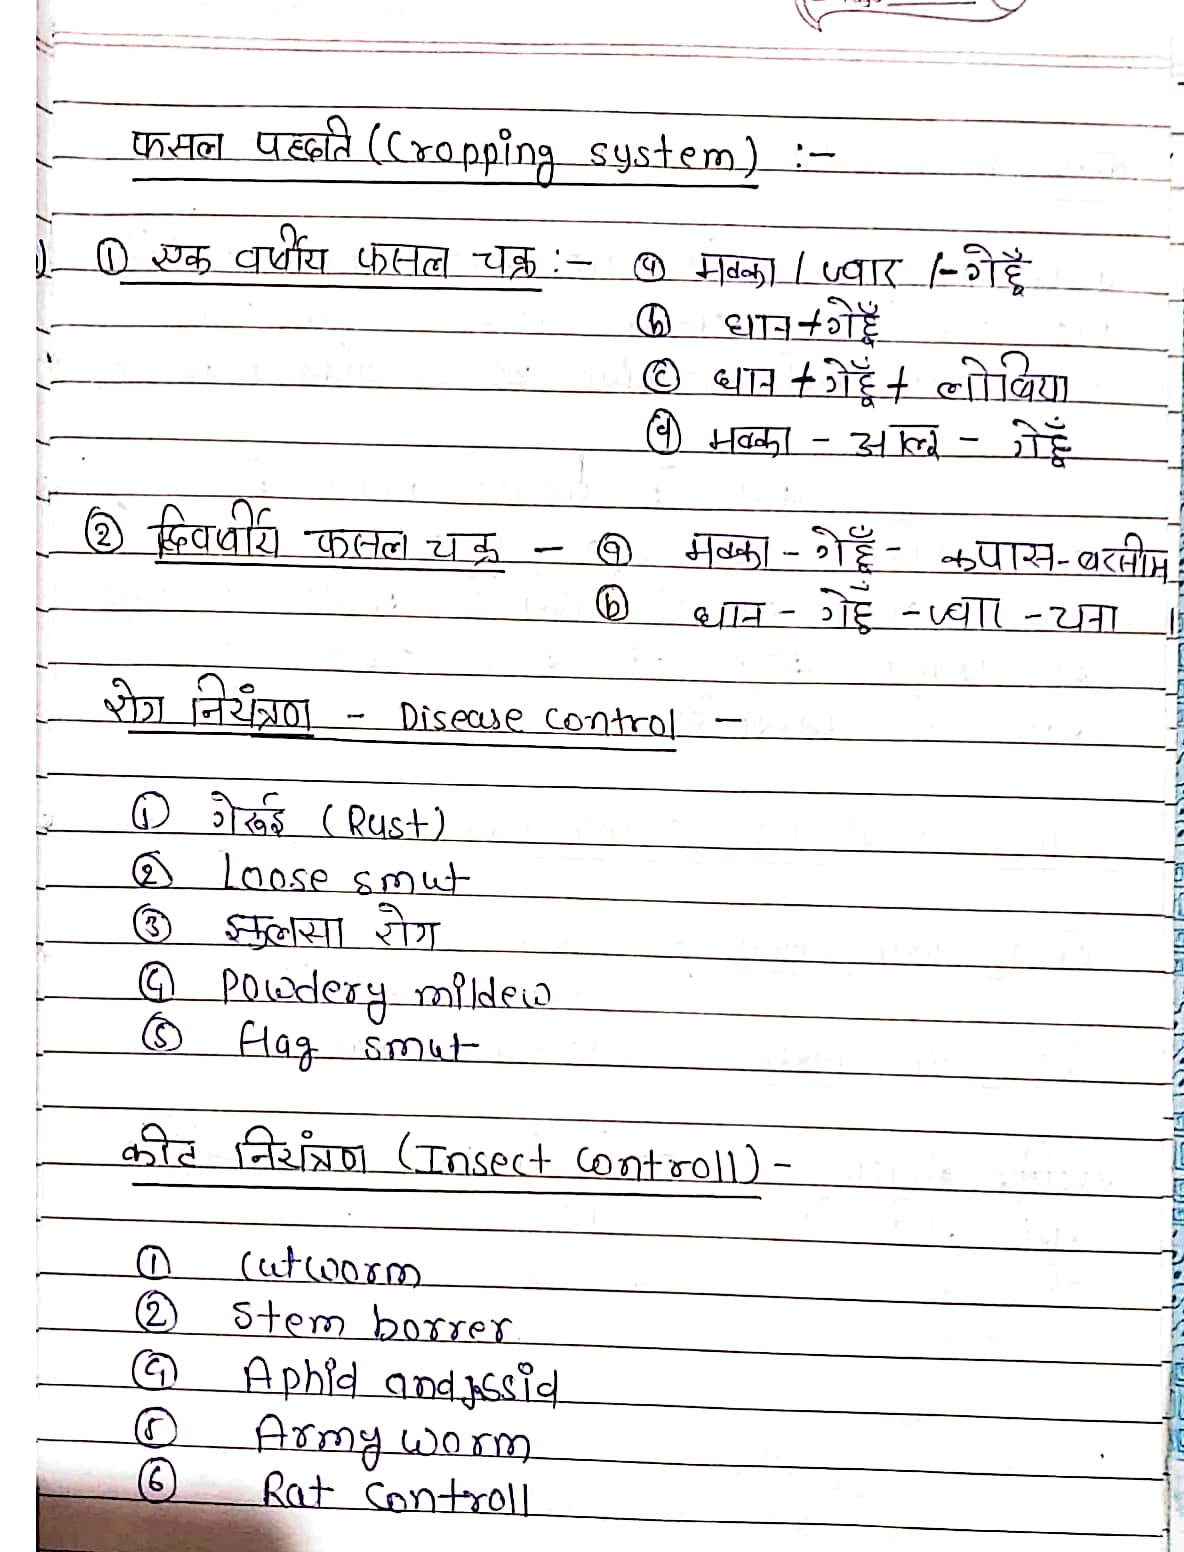 फसल पद्धति (Cropping system) :-
① एक वर्षीय फसल चक्र :- ⓐ मक्का / ज्वार /- गेहूँ
ⓑ धान + गेहूँ
ⓒ धान + गेहूँ + लोबिया
ⓓ मक्का - आलू - गेहूँ
② द्विवर्षीय फसल चक्र - ⓐ मक्का - गेहूँ - कपास - बरसीम
ⓑ धान - गेहूँ - ज्वार - चना ।
रोग नियंत्रण - Disease control -
① गेरुई (Rust)
② Loose smut
③ झुलसा रोग
④ Powdery mildew
⑤ flag smut
कीट नियंत्रण (Insect controll) -
① Cutworm
② Stem borrer
④ Aphid and jassid
⑤ Army worm
⑥ Rat controll